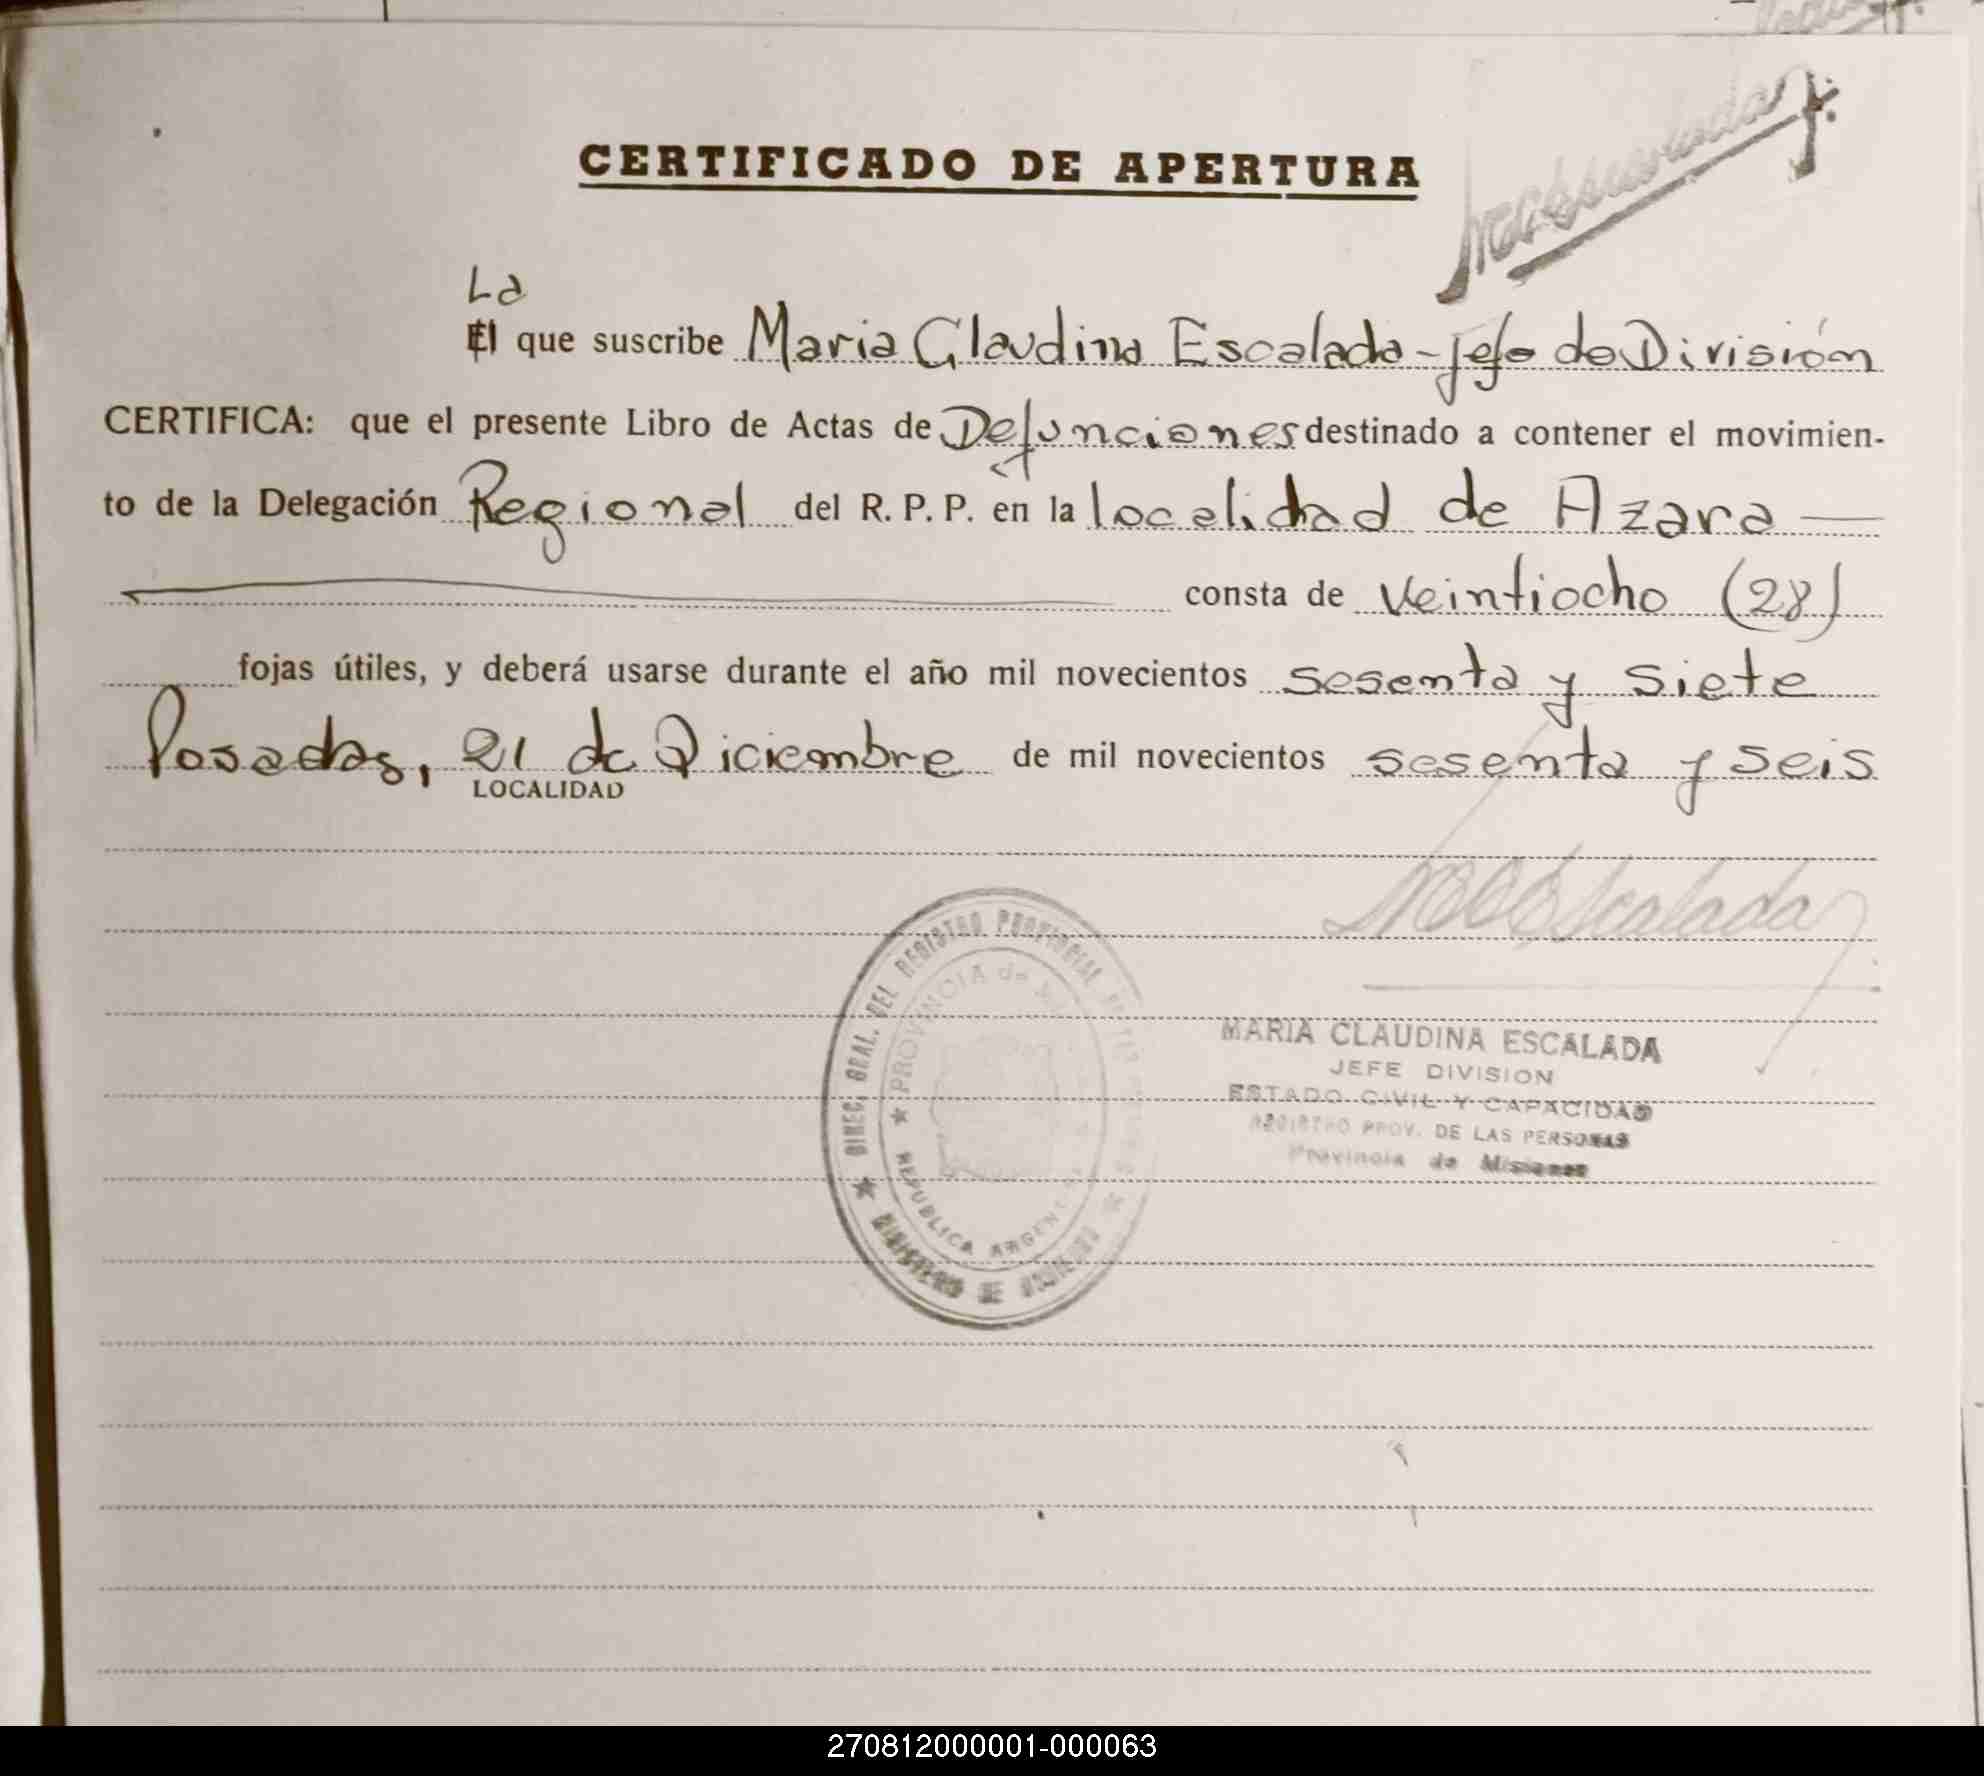 CERTIFICADO DE APERTURA
La
El que suscribe Maria Claudina Escalada - Jefe de División
CERTIFICA: que el presente Libro de Actas de Defunciones destinado a contener el movimien-
to de la Delegación Regional del R. P. P. en la localidad de Azara —
consta de Veintiocho (28)
fojas útiles, y deberá usarse durante el año mil novecientos sesenta y siete
Posadas, 21 de Diciembre de mil novecientos sesenta y seis
LOCALIDAD
MCEscalada
DIREC. GRAL. DEL REGISTRO PROVINCIAL
PROVINCIA de
REPUBLICA ARGENTINA
MINISTERIO DE GOBIERNO
MARIA CLAUDINA ESCALADA
JEFE DIVISION
ESTADO CIVIL Y CAPACIDAD
REGISTRO PROV. DE LAS PERSONAS
Provincia de Misiones
270812000001-000063